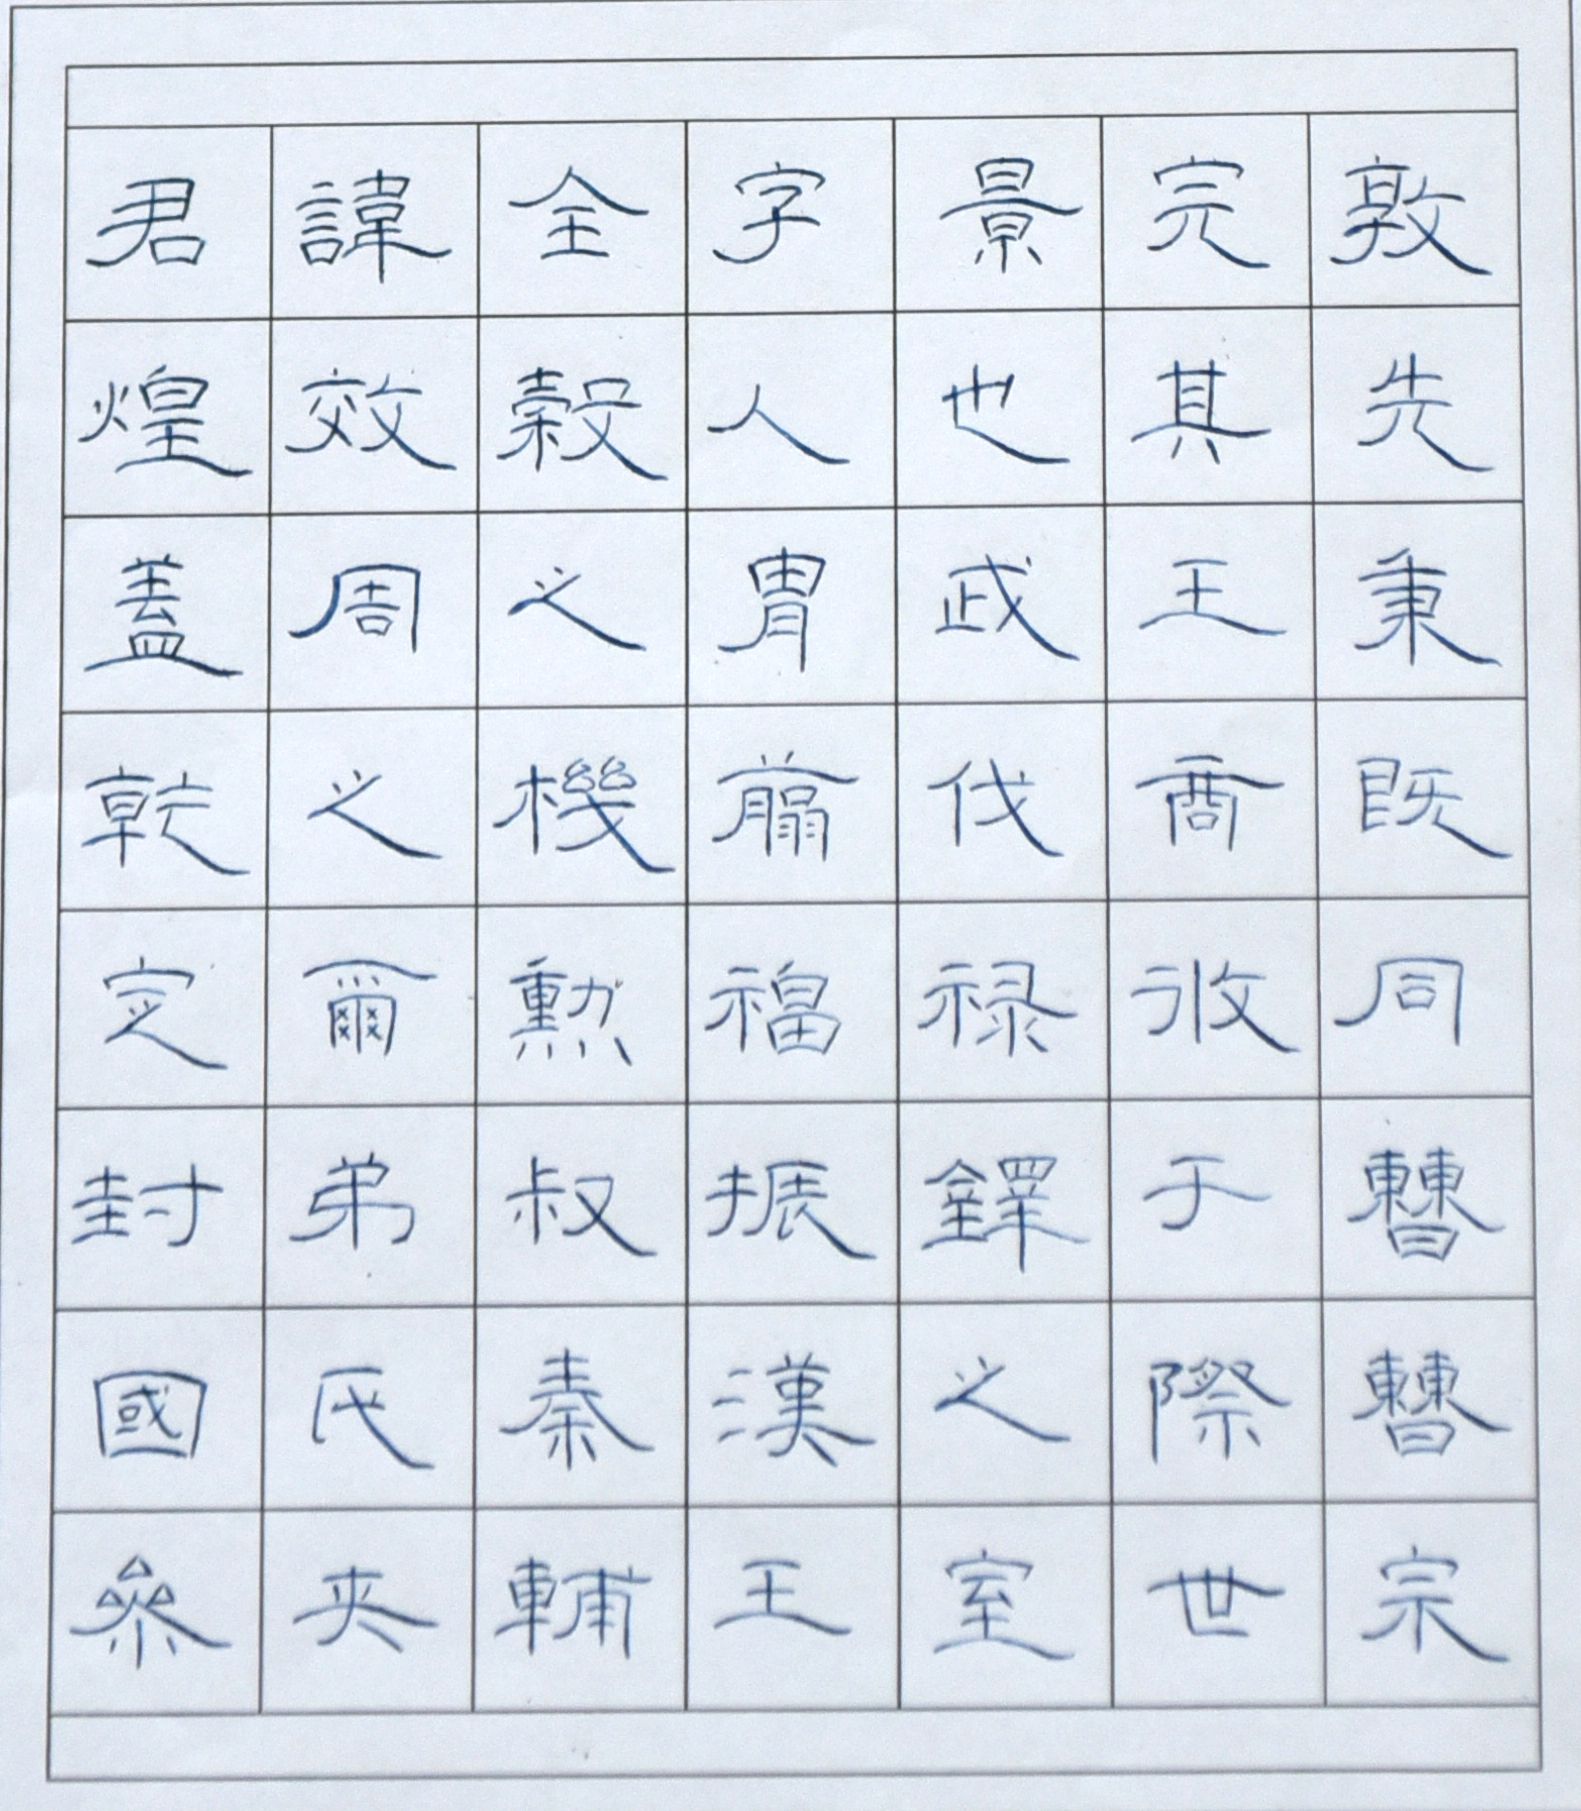 君諱全字景完敦
煌效穀人也其先
蓋周之胄武王秉
乾之機翦伐商既
定爾勲福祿攸同
封弟叔振鐸于㬱
國氏秦漢之際㬱
參夾輔王室世宗